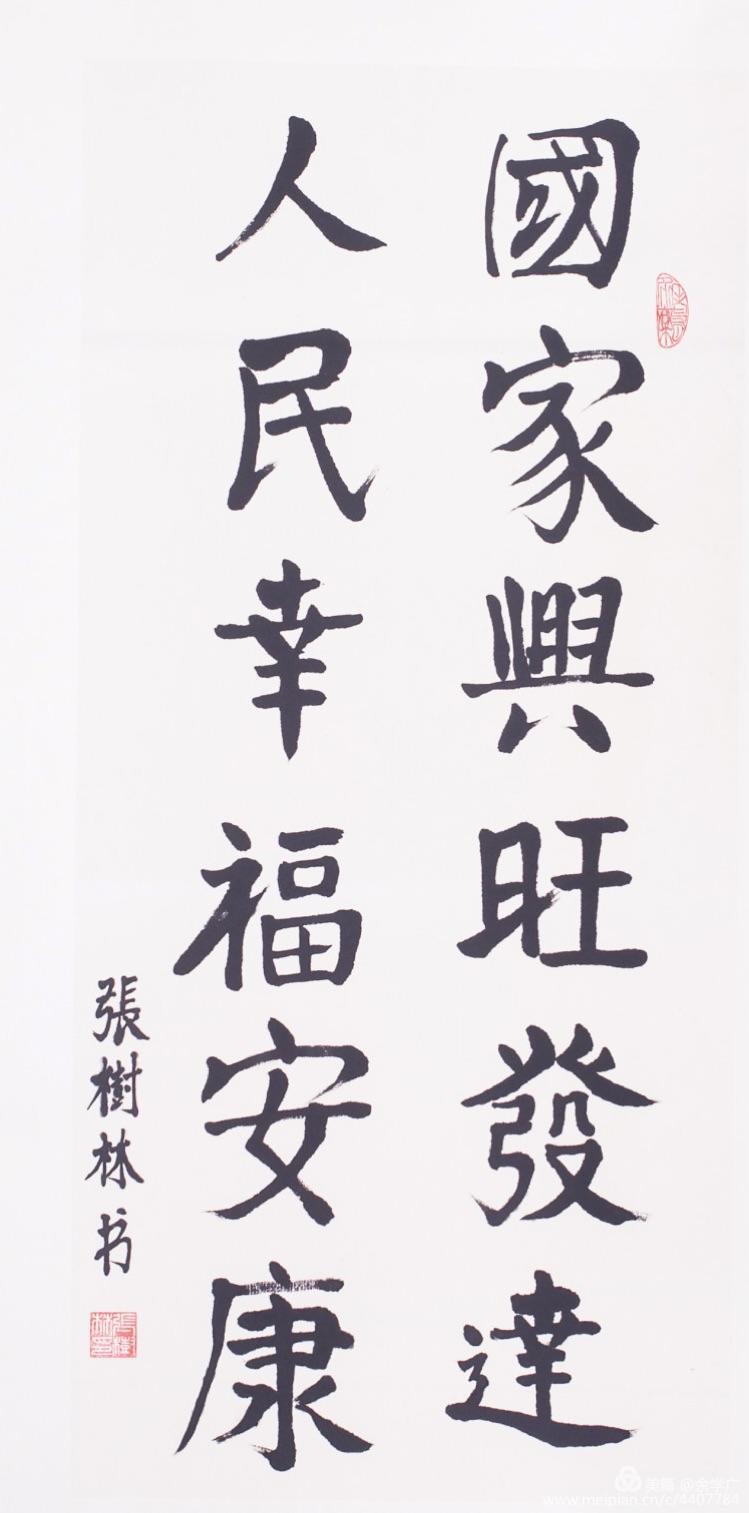 國家興旺發達
人民幸福安康
張樹林书
張樹林印
美篇 @余学广
www.meipian.cn/c/4407784